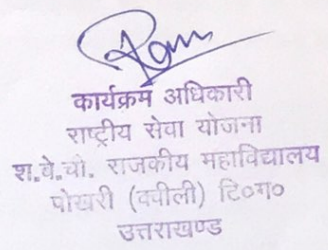 Ram
कार्यक्रम अधिकारी
राष्ट्रीय सेवा योजना
श.बे.चौ. राजकीय महाविद्यालय
पोखरी (क्वीली) टि०ग०
उत्तराखण्ड